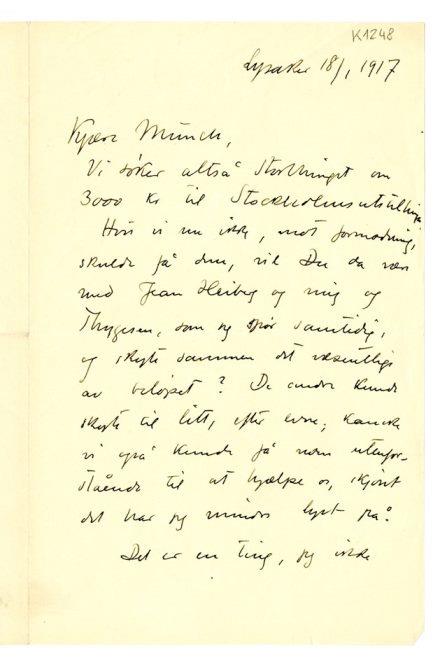 K1248
Lysaker 18/1 1917
Kjære Munch,
Vi søker altså Storthinget om
3000 kr til Stockholmsutstillingen
Hvis vi nu ikke, mot formodning,
skulde få dem, vil Du da være
med Jean Heiberg og mig og
Thygesen, som jeg spør samtidig,
og skyte sammen det væsentlige
av beløpet? De andre kunde
skyte til litt, efter evne; kanske
vi også kunde få noen utenfor-
stående til at hjælpe os, skjønt
det har jeg mindre lyst på.
Det er en ting, jeg ikke